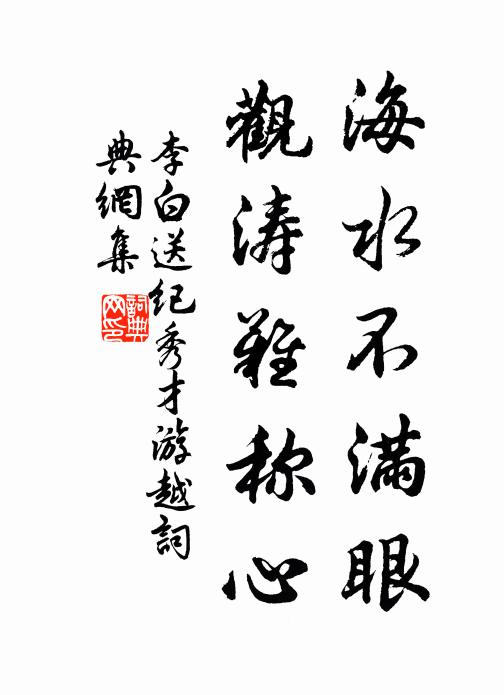 海水不满眼
觀涛難称心
李白送纪秀才游越詞
典網集
詞典网印